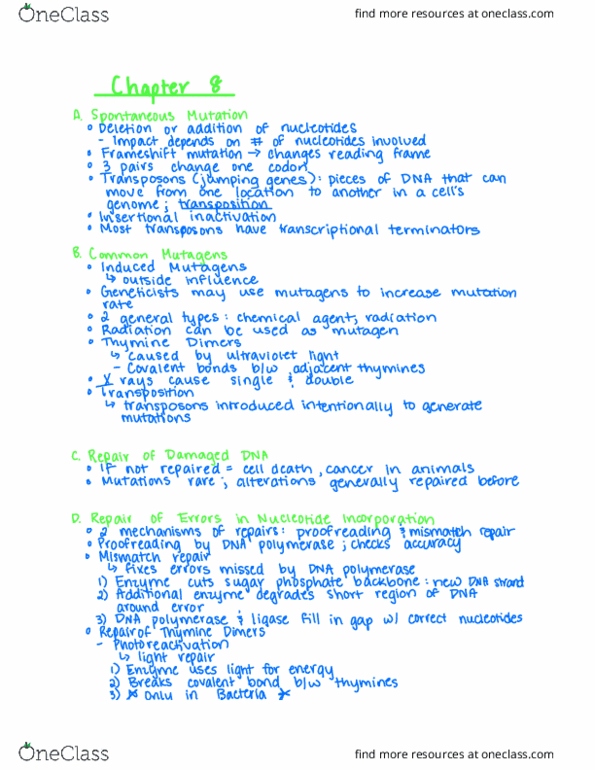 OneClass
find more resources at oneclass.com
Chapter 8
A. Spontaneous Mutation
• Deletion or addition of nucleotides
- Impact depends on # of nucleotides involved
• Frameshift mutation → changes reading frame
• 3 pairs change one codon
• Transposons (jumping genes): pieces of DNA that can
move from one location to another in a cell's
genome; transposition
• Insertional inactivation
• Most transposons have transcriptional terminators
B. Common Mutagens
• Induced Mutagens
↳ outside influence
• Geneticists may use mutagens to increase mutation
rate
• 2 general types: chemical agent, radiation
• Radiation can be used as mutagen
• Thymine Dimers
↳ caused by ultraviolet light
- Covalent bonds b/w adjacent thymines
• X rays cause single & double
• Transposition
↳ transposons introduced intentionally to generate
mutations
C. Repair of Damaged DNA
• If not repaired = cell death, cancer in animals
• Mutations rare; alterations generally repaired before
D. Repair of Errors in Nucleotide Incorporation
• 2 mechanisms of repairs: proofreading & mismatch repair
• Proofreading by DNA polymerase; checks accuracy
• Mismatch repair
↳ fixes errors missed by DNA polymerase
1) Enzyme cuts sugar phosphate backbone: new DNA strand
2) Additional enzyme degrades short region of DNA
around error
3) DNA polymerase & ligase fill in gap w/ correct nucleotides
• Repair of Thymine Dimers
- Photoreactivation
↳ light repair
1) Enzyme uses light for energy
2) Breaks covalent bond b/w thymines
3) * Only in Bacteria *
OneClass
find more resources at oneclass.com